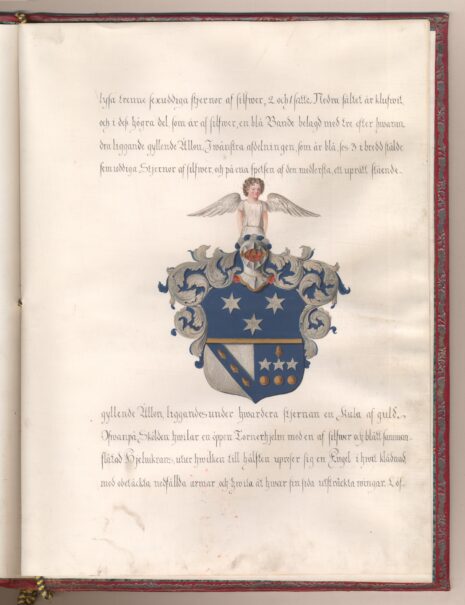 lysa trenne sexuddiga stjernor af silfwer, 2 och 1 satte. Nedra fältet är klufwit,
och i dess högra del, som är af silfwer, en blå Bande belagd med tre efter hwaran-
dra liggande gyllende Ållon. I wänstra afdelningen, som är blå, ses 3 i bredd stälde
sem uddiga Stjernor af silfwer, och på ena spetsen af den medlersta, ett uprätt stående
gyllende Ållon, liggandes under hwardera stjernan en Kula af guld.
Ofwanpå Skölden hwilar en öppen Tornerhjelm med en af silfwer och blått samman-
flätad Hjelmkrans, utur hwilken till hälften upreser sig en Engel i hwit klädnad
med obetäckta nedfällda armar och hwita åt hwar sin sida utsträckta wingar. Löf-